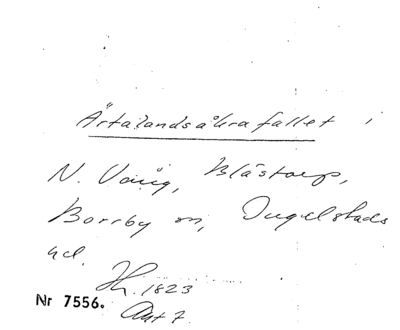 Ärtalandsåkrafallet i
N. Vång, Blästorp,
Borrby sn, Ingelstads
hd.
Hr. 1823
Nr 7556. Akt 7.